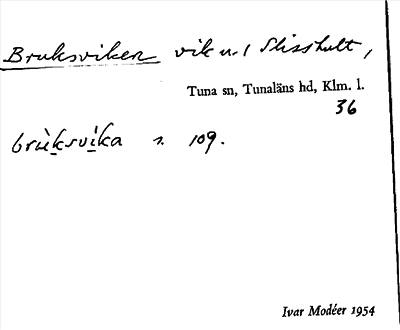 Bruksviken vik u. I Slisshult,
Tuna sn, Tunaläns hd, Klm. l.
36
brùksvíka s. 109.
Ivar Modéer 1954